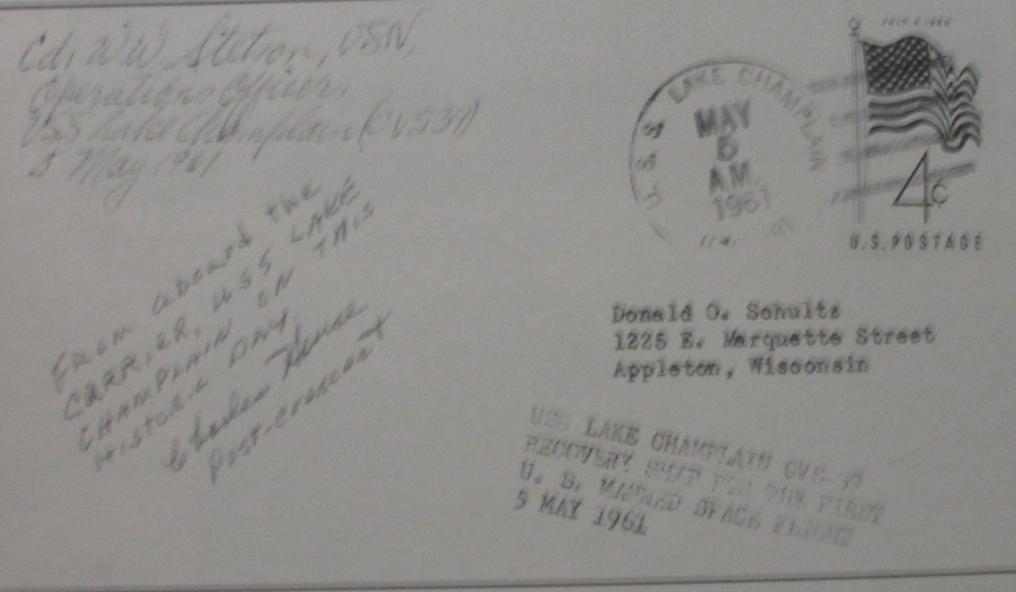 Cdr W W Stetson, USN,
Operations Officer,
USS Lake Champlain (CVS39)
5 May 1961
FROM aboard the
CARRIER, USS LAKE
CHAMPLAIN ON THIS
HISTORIC DAY.
House
Post-Crescent
U.S.S. LAKE CHAMPLAIN
MAY
5
A.M.
1961
JULY 4 1960
4¢
U.S. POSTAGE
Donald O. Schultz
1225 E. Marquette Street
Appleton, Wisconsin
USS LAKE CHAMPLAIN CVS-39
RECOVERY SHIP FOR THE FIRST
U. S. MANNED SPACE FLIGHT
5 MAY 1961